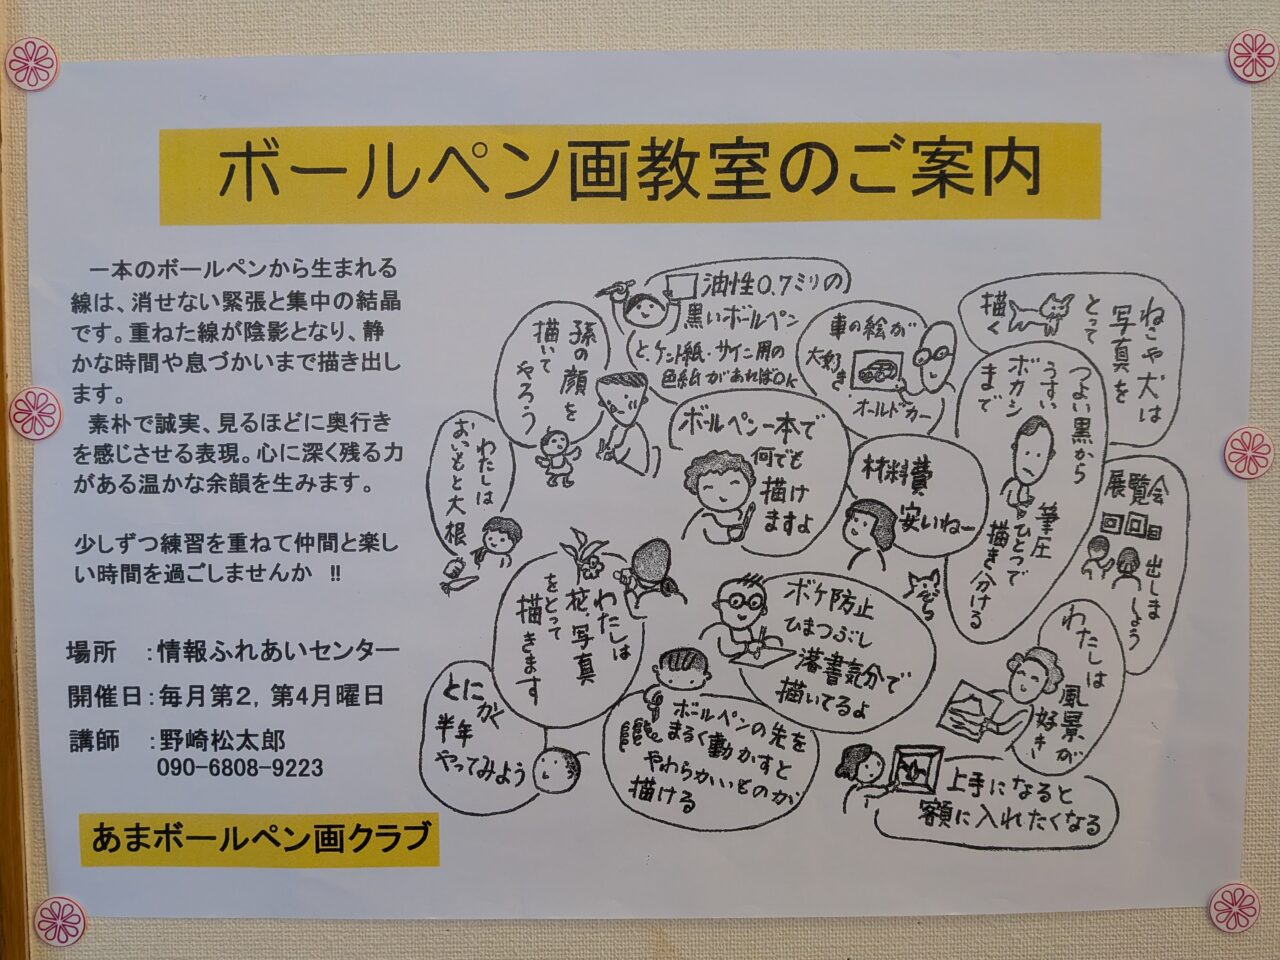 ボールペン画教室のご案内
一本のボールペンから生まれる
線は、消せない緊張と集中の結晶
です。重ねた線が陰影となり、静
かな時間や息づかいまで描き出し
ます。
素朴で誠実、見るほどに奥行き
を感じさせる表現。心に深く残る力
がある温かな余韻を生みます。
少しずつ練習を重ねて仲間と楽し
い時間を過ごしませんか !!
場所 :情報ふれあいセンター
開催日:毎月第2,第4月曜日
講師 :野崎松太郎
090-6808-9223
あまボールペン画クラブ
油性0.7ミリの
黒いボールペン
と、ケント紙・サイン用の
色紙があればOK
孫の顔を
描いて
やろう
車の絵が
大好き
オールドカー
ねこや犬は
写真を
とって
描く
つよい黒から
うすい
ボカシ
まで
筆圧
ひとつで
描き分ける
わたしは
おいもと大根
ボールペン一本で
何でも
描け
ますよ
材料費
安いねー
展覧会
出しま
しょう
わたしは
花、写真
をとって
描きます
ボケ防止
ひまつぶし
落書気分で
描いてるよ
わたしは
風景が
好き
とにかく
半年
やってみよう
ボールペンの先を
まるく動かすと
やわらかいものが
描ける
上手になると
額に入れたくなる